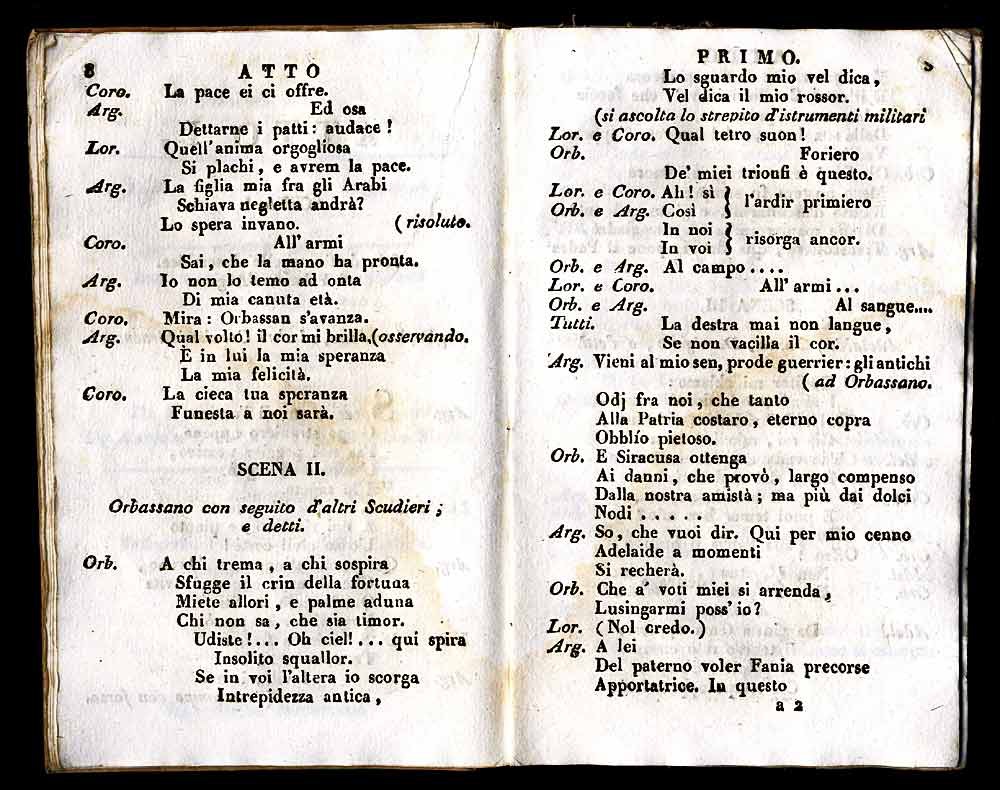 8 ATTO
Coro. La pace ei ci offre.
Arg. Ed osa
Dettarne i patti: audace!
Lor. Quell'anima orgogliosa
Si plachi, e avrem la pace.
Arg. La figlia mia fra gli Arabi
Schiava negletta andrà?
Lo spera invano. (risoluto.
Coro. All' armi
Sai, che la mano ha pronta.
Arg. Io non lo temo ad onta
Di mia canuta età.
Coro. Mira: Orbassan s'avanza.
Arg. Qual volto! il cor mi brilla,(osservando.
È in lui la mia speranza
La mia felicità.
Coro. La cieca tua speranza
Funesta a noi sarà.
SCENA II.
Orbassano con seguito d'altri Scudieri;
e detti.
Orb. A chi trema, a chi sospira
Sfugge il crin della fortuna
Miete allori, e palme aduna
Chi non sa, che sia timor.
Udiste!... Oh ciel!... qui spira
Insolito squallor.
Se in voi l'altera io scorga
Intrepidezza antica,
PRIMO.
Lo sguardo mio vel dica,
Vel dica il mio rossor.
(si ascolta lo strepito d'istrumenti militari
Lor. e Coro. Qual tetro suon!
Orb. Foriero
De' miei trionfi è questo.
Lor. e Coro. Ah! sì } l'ardir primiero
Orb. e Arg. Così
In noi } risorga ancor.
In voi
Orb. e Arg. Al campo....
Lor. e Coro. All' armi...
Orb. e Arg. Al sangue....
Tutti. La destra mai non langue,
Se non vacilla il cor.
Arg. Vieni al mio sen, prode guerrier: gli antichi
(ad Orbassano.
Odj fra noi, che tanto
Alla Patria costaro, eterno copra
Obblío pietoso.
Orb. E Siracusa ottenga
Ai danni, che provò, largo compenso
Dalla nostra amistà; ma più dai dolci
Nodi . . . .
Arg. So, che vuoi dir. Qui per mio cenno
Adelaide a momenti
Si recherà.
Orb. Che a' voti miei si arrenda,
Lusingarmi poss' io?
Lor. (Nol credo.)
Arg. A lei
Del paterno voler Fania precorse
Apportatrice. In questo
a 2